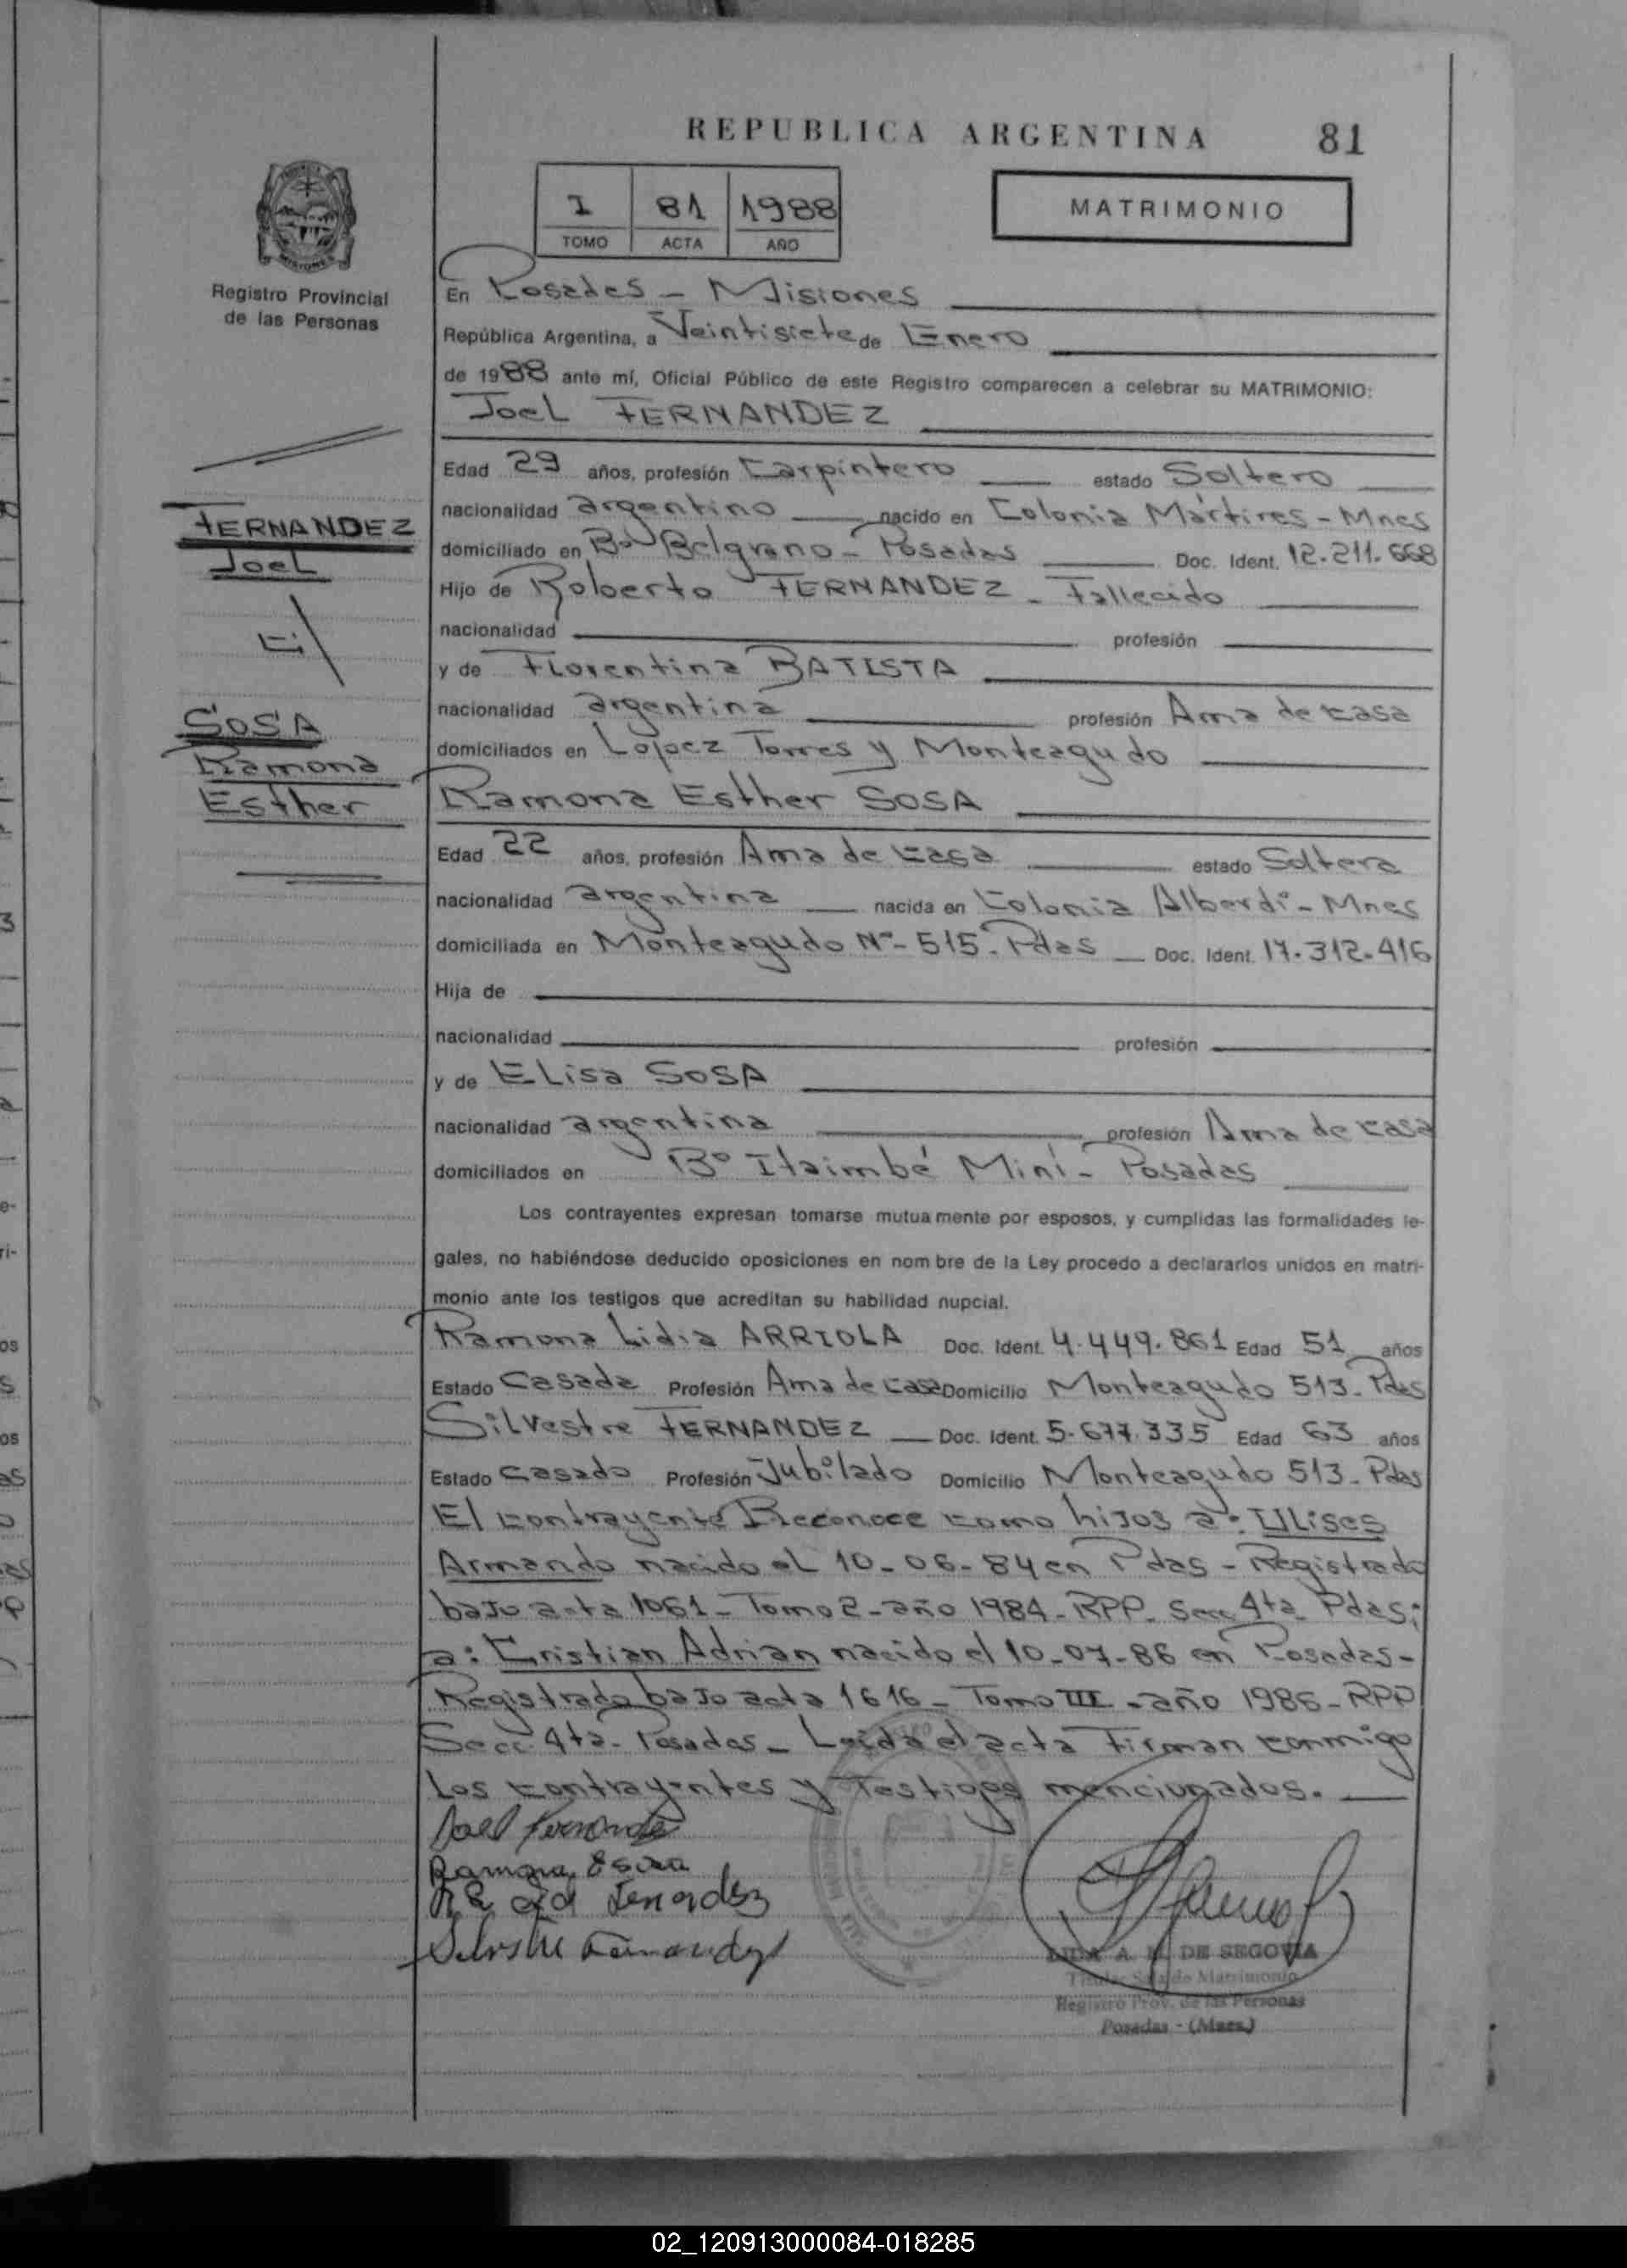 REPUBLICA ARGENTINA 81
I 81 1988
TOMO ACTA AÑO
MATRIMONIO
Registro Provincial
de las Personas
En Posadas - Misiones
República Argentina, a Veintisiete de Enero
de 1988 ante mí, Oficial Público de este Registro comparecen a celebrar su MATRIMONIO:
Joel FERNANDEZ
Edad 29 años, profesión Carpintero estado Soltero
nacionalidad argentino nacido en Colonia Mártires - Mnes
domiciliado en Bº Belgrano - Posadas Doc. Ident. 12.211.668
Hijo de Roberto FERNANDEZ - Fallecido
nacionalidad profesión
y de Florentina BATISTA
nacionalidad argentina profesión Ama de casa
domiciliados en López Torres y Monteagudo
FERNANDEZ
Joel
c/
SOSA
Ramona
Esther
Ramona Esther SOSA
Edad 22 años, profesión Ama de casa estado Soltera
nacionalidad argentina nacida en Colonia Alberdi - Mnes
domiciliada en Monteagudo Nº 515 - Pdas Doc. Ident. 17.312.416
Hija de
nacionalidad profesión
y de Elisa SOSA
nacionalidad argentina profesión Ama de casa
domiciliados en Bº Itaimbé Miní - Posadas
Los contrayentes expresan tomarse mutuamente por esposos, y cumplidas las formalidades le-
gales, no habiéndose deducido oposiciones en nombre de la Ley procedo a declararlos unidos en matri-
monio ante los testigos que acreditan su habilidad nupcial.
Ramona Lidia ARRIOLA Doc. Ident. 4.449.861 Edad 51 años
Estado Casada Profesión Ama de casa Domicilio Monteagudo 513 - Pdas
Silvestre FERNANDEZ Doc. Ident. 5.677.335 Edad 63 años
Estado Casado Profesión Jubilado Domicilio Monteagudo 513 - Pdas
El contrayente Reconoce como hijos a: Ulises
Armando nacido el 10-06-84 en Pdas - Registrado
bajo acta 1061 - Tomo 2 - año 1984 - RPP. Secc 4ta Pdas;
a: Cristian Adrian nacido el 10-07-86 en Posadas -
Registrado bajo acta 1616 - Tomo III - año 1986 - RPP
Secc 4ta - Posadas - Leída el acta Firman conmigo
los contrayentes y Testigos mencionados.
Joel Fernandez
Ramona E Sosa
Silvestre Fernandez
LIDA A. DE SEGOVIA
Titular Sala de Matrimonio
Registro Prov. de las Personas
Posadas - (Mnes.)
02_120913000084-018285